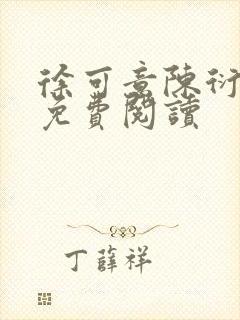 徐可意陳衍
免費閱讀
丁薛祥